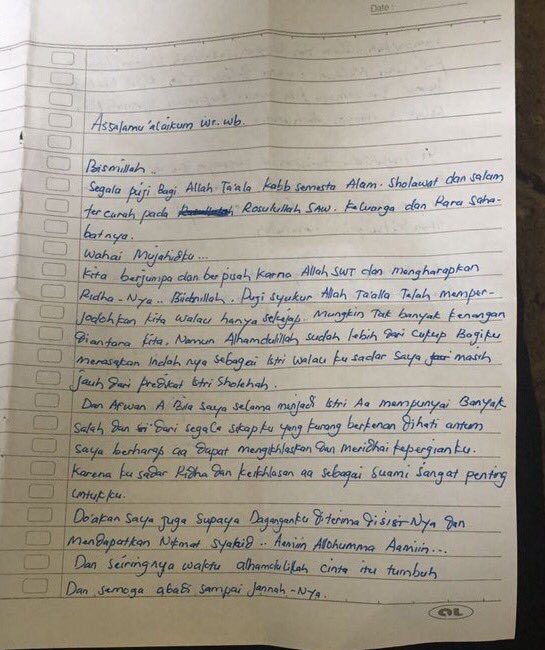 Date :
Assalamu'alaikum Wr. Wb.
Bismillah..
Segala puji Bagi Allah Ta'ala Rabb semesta Alam. Sholawat dan salam
tercurah pada Rosulullah SAW. Keluarga dan Para Saha-
batnya.
Wahai Mujahidku...
Kita berjumpa dan berpisah karna Allah SWT dan mengharapkan
Ridha-Nya.. Biidnillah. Puji syukur Allah Ta'alla Telah memper-
Jodohkan kita walau hanya sekejap. Mungkin Tak banyak kenangan
diantara kita. Namun Alhamdulillah sudah lebih dari cukup Bagiku
merasakan Indah nya sebagai Istri walau ku sadar saya masih
jauh dari predikat Istri Sholehah.
Dan Afwan A Bila saya selama menjadi Istri Aa mempunyai Banyak
salah dan dari segala sikapku yang kurang berkenan dihati antum
saya berharap aa dapat mengikhlaskan dan meridhai kepergianku.
Karena ku sadar Ridha dan keikhlasan aa sebagai suami sangat penting
untukku.
Do'akan saya juga supaya Daganganku diterima disisi-Nya dan
Mendapatkan Nikmat syahid.. Aamiin Allohumma Aamiin...
Dan seiringnya waktu alhamdulillah cinta itu tumbuh
Dan semoga abadi sampai Jannah-Nya.
OL